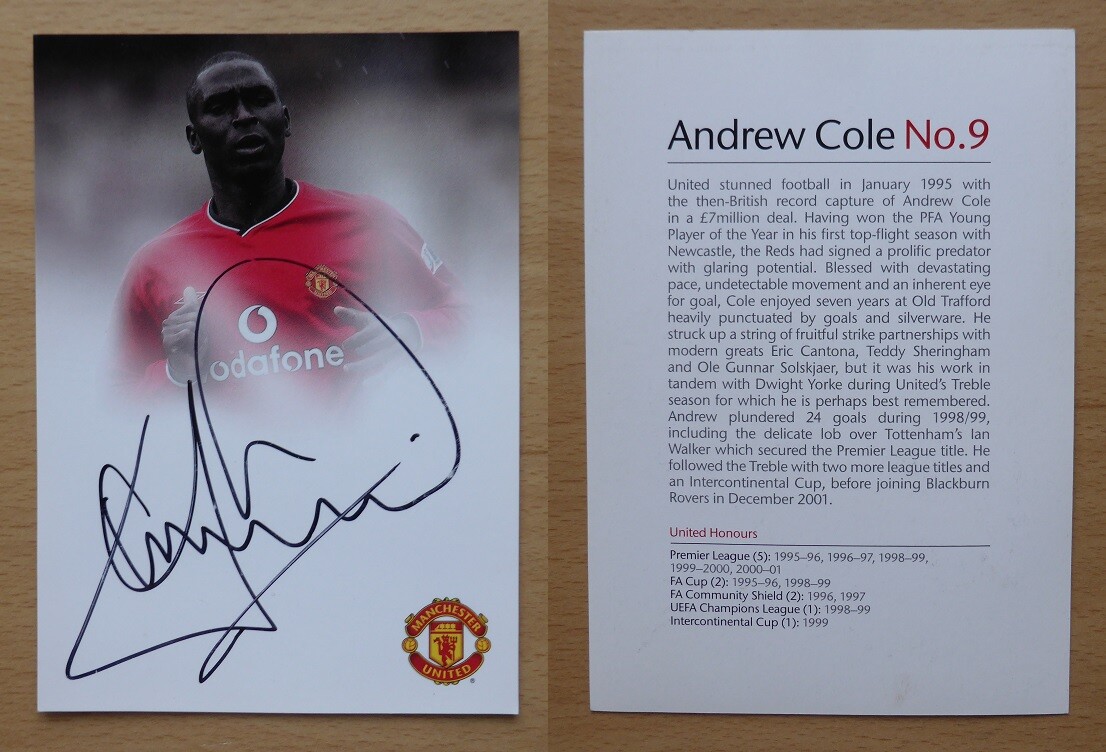 vodafone
MANCHESTER
UNITED
Andrew Cole No.9
United stunned football in January 1995 with
the then-British record capture of Andrew Cole
in a £7million deal. Having won the PFA Young
Player of the Year in his first top-flight season with
Newcastle, the Reds had signed a prolific predator
with glaring potential. Blessed with devastating
pace, undetectable movement and an inherent eye
for goal, Cole enjoyed seven years at Old Trafford
heavily punctuated by goals and silverware. He
struck up a string of fruitful strike partnerships with
modern greats Eric Cantona, Teddy Sheringham
and Ole Gunnar Solskjaer, but it was his work in
tandem with Dwight Yorke during United's Treble
season for which he is perhaps best remembered.
Andrew plundered 24 goals during 1998/99,
including the delicate lob over Tottenham's Ian
Walker which secured the Premier League title. He
followed the Treble with two more league titles and
an Intercontinental Cup, before joining Blackburn
Rovers in December 2001.
United Honours
Premier League (5): 1995–96, 1996–97, 1998–99,
1999–2000, 2000–01
FA Cup (2): 1995–96, 1998–99
FA Community Shield (2): 1996, 1997
UEFA Champions League (1): 1998–99
Intercontinental Cup (1): 1999